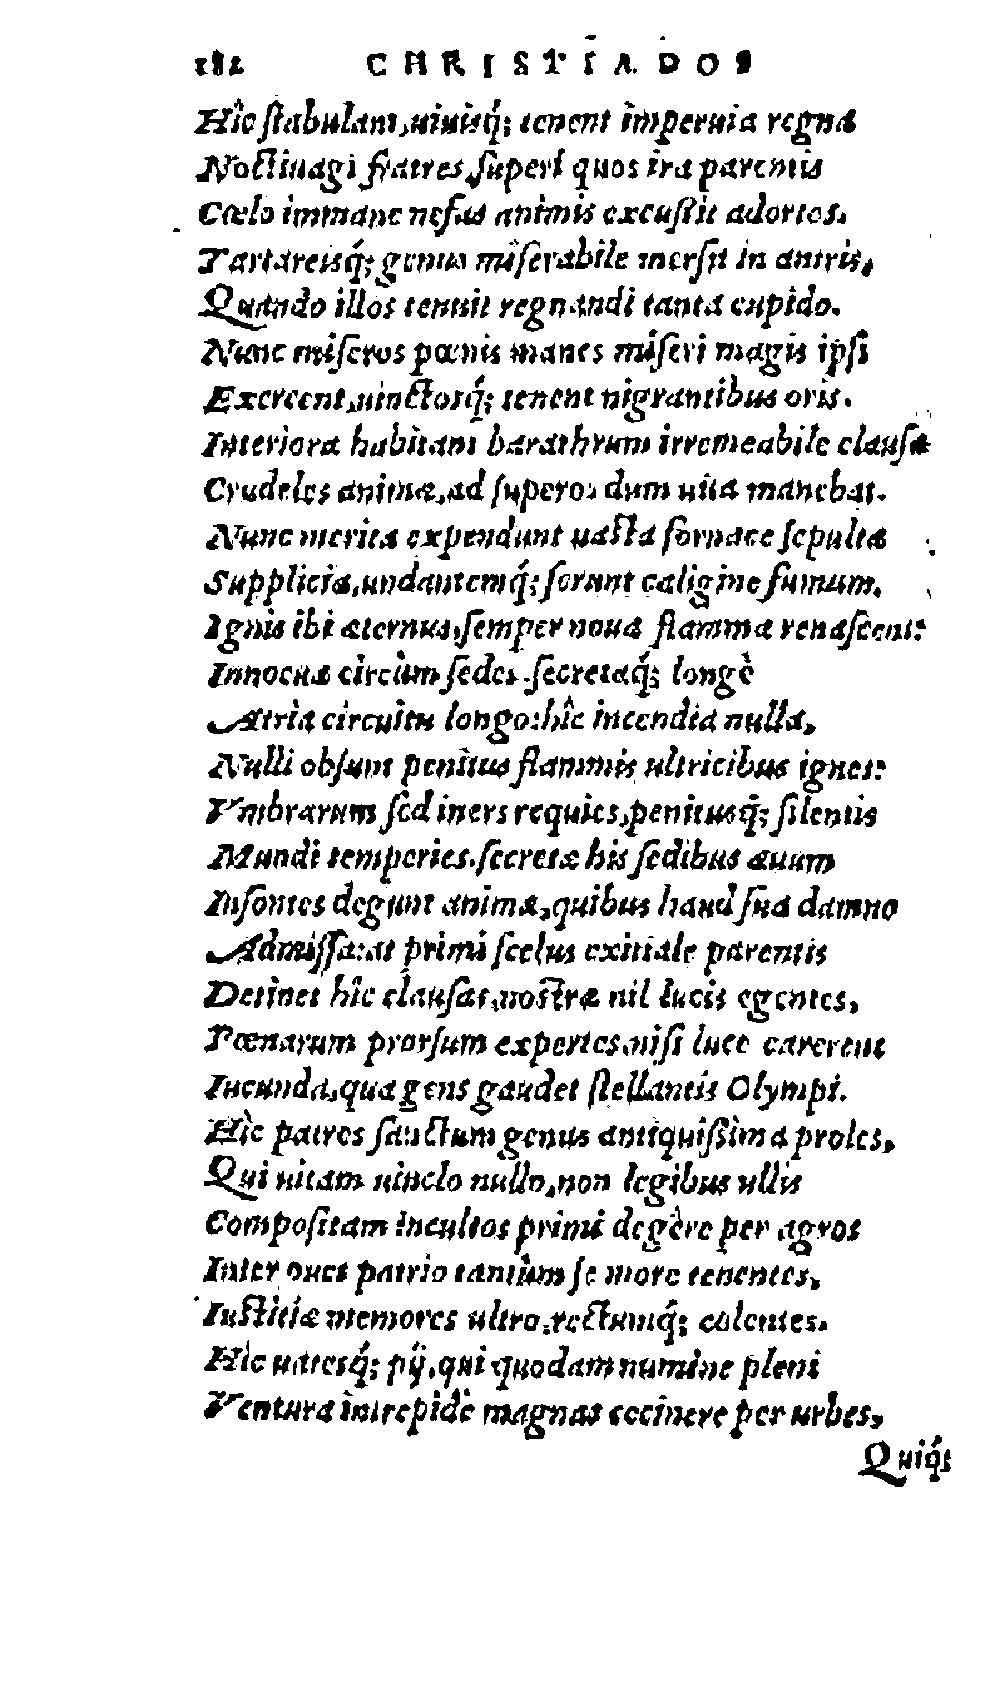 182 CHRISTIADOS
Hîc ſtabulant, uiuisq́; tenent impernia regna
Noctiuagi fratres, ſuperi quos ira parentis
Cœlo immane nefas animis excuſsit adortos.
Tartareisq́; genus miſerabile merſit in antris,
Quando illos tenuit regnandi tanta cupido.
Nunc miſeros pœnis manes miſeri magis ipſi
Exercent, uinctosq́; tenent nigrantibus oris.
Interiora habitant barathrum irremeabile clauſæ
Crudeles animæ, ad ſuperos dum uita manebat.
Nunc merita expendunt uaſta fornace ſepultæ
Supplicia, undantemq́; ferunt caligine fumum.
Ignis ibi æternus, ſemper noua flamma renaſcens:
Innocuæ circùm ſedes, ſecretaq́; longè
Atria circuitu longo: hîc incendia nulla,
Nulli obſunt penitus flammis ultricibus ignes:
Vmbrarum ſed iners requies, penitusq́; ſilentis
Mundi temperies. ſecretæ his ſedibus æuum
Inſontes degunt animæ, quibus haud ſua damno
Admiſſa: at primi ſcelus exitiale parentis
Detinet hîc clauſas, nostræ nil lucis egentes,
Pœnarum prorſum expertes, niſi luce carerent
Iucunda, qua gens gaudet ſtellantis Olympi.
Hîc patres ſanctum genus antiquiſsima proles,
Qui uitam uinclo nullo, non legibus ullis
Compoſitam incultos primi degère per agros
Inter oues patrio tantùm ſe more tenentes,
Iuſtitiæ memores ultro, rectumq́; colentes.
Hîc uatesq́; pij, qui quodam numine pleni
Ventura intrepidè magnas cecinere per urbes,
Quiq́;